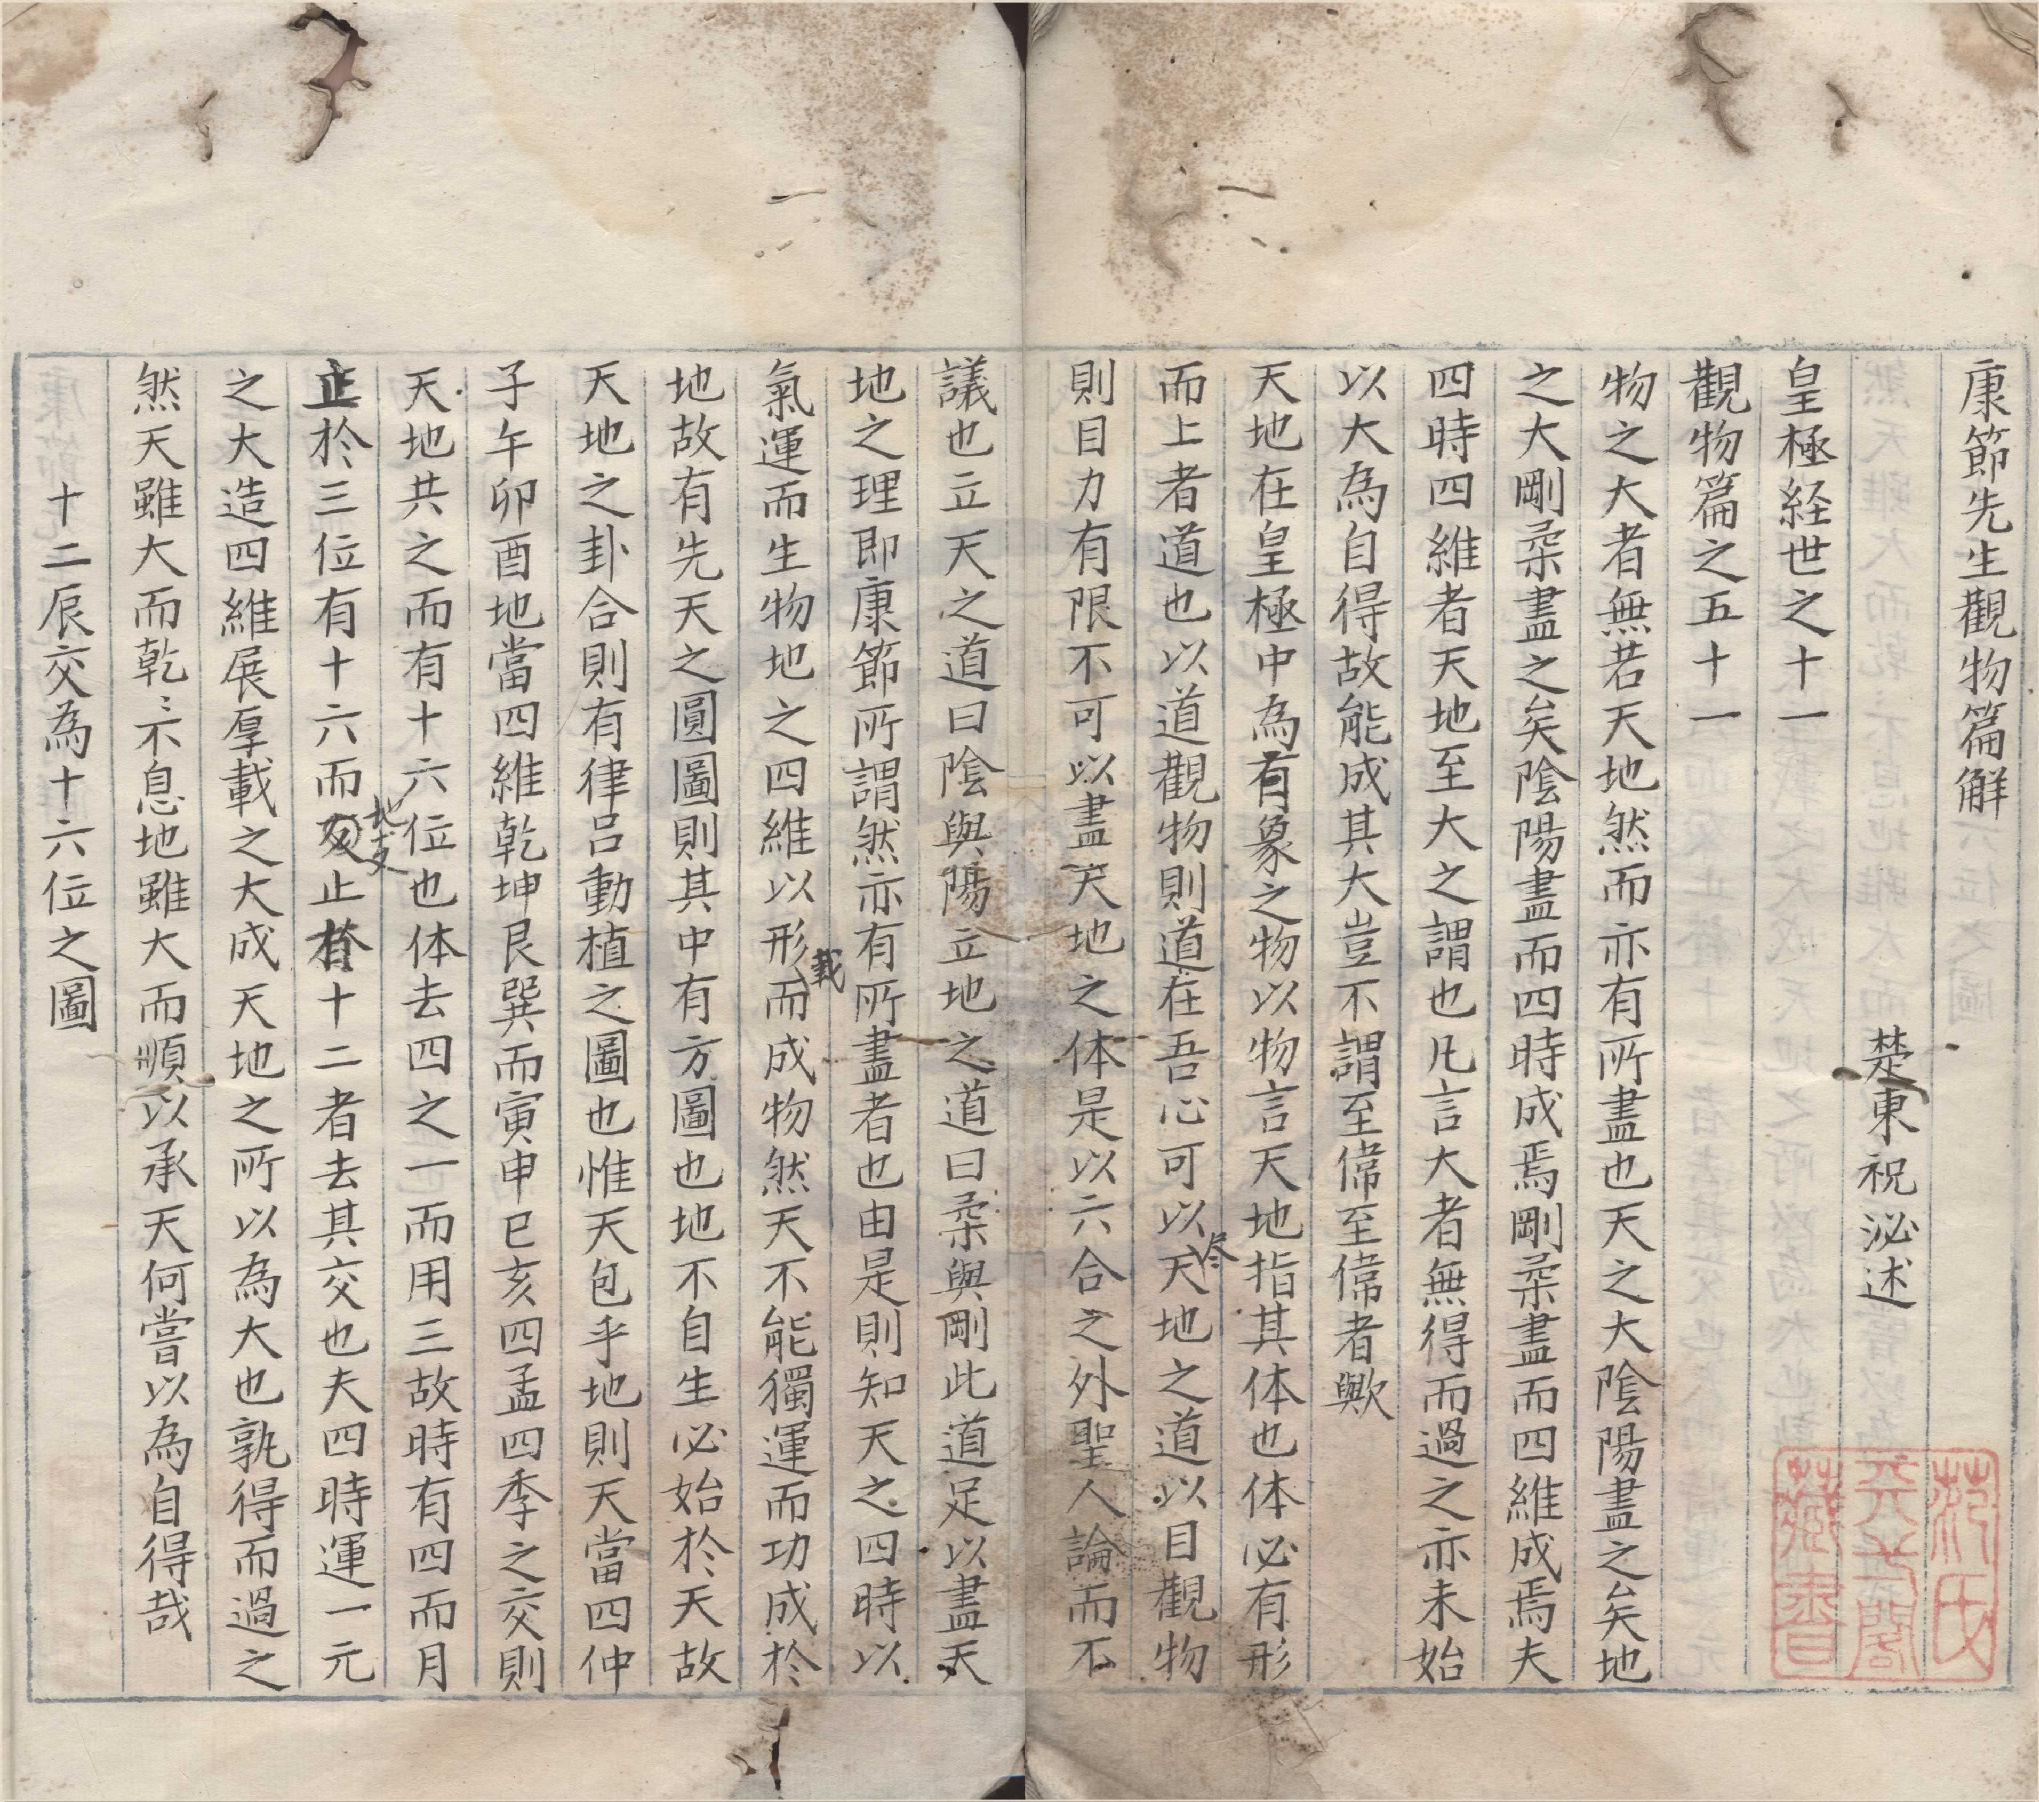 康節先生觀物篇解
楚東祝泌述
皇極経世之十一
觀物篇之五十一
物之大者無若天地然而亦有所盡也天之大陰陽盡之矣地
之大剛柔盡之矣陰陽盡而四時成焉剛柔盡而四維成焉夫
四時四維者天地至大之謂也凡言大者無得而過之亦未始
以大為自得故能成其大豈不謂至偉至偉者歟
天地在皇極中為有象之物以物言天地指其体也体必有形
而上者道也以道觀物則道在吾心可以尽天地之道以目觀物
則目力有限不可以盡天地之体是以六合之外聖人論而不
議也立天之道曰陰與陽立地之道曰柔與剛此道足以盡天
地之理即康節所謂然亦有所盡者也由是則知天之四時以
氣運而生物地之四維以形載而成物然天不能獨運而功成於
地故有先天之圓圖則其中有方圖也地不自生必始於天故
天地之卦合則有律呂動植之圖也惟天包乎地則天當四仲
子午卯酉地當四維乾坤艮巽而寅申巳亥四孟四季之交則
天地共之而有十六位也体去四之一而用三故時有四而月
止於三位有十六而地支止於十二者去其交也夫四時運一元
之大造四維展厚載之大成天地之所以為大也孰得而過之
然天雖大而乾〻不息地雖大而順以承天何嘗以為自得哉
十二辰交為十六位之圖
范氏
天一閣
藏書